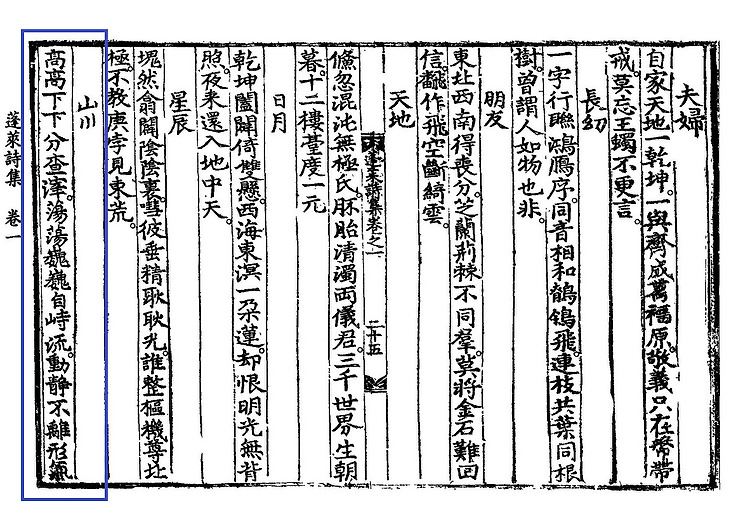 夫婦
自家天地一乾坤。一與齊成萬福原。敬義只在幣帶
戒。莫忘王蠋不更言。
長幼
一字行聯鴻鴈序。同音相和鶺鴒飛。連枝共葉同根
樹。曾謂人如物也非。
朋友
東北西南得喪分。芝蘭荊棘不同羣。莫將金石難回
信。飜作飛空斷綺雲。
天地
蓬萊詩集卷之一 二十五
儵忽混沌無極氏。胚胎清濁両儀君。三千世界生朝
暮。十二樓䑓度一元
日月
乾坤闔闢倚雙懸。西海東溟一朶蓮。却恨明光無背
照。夜來還入地中天。
星辰
塊然翕闢陰陰裏。彗彼垂精耿耿光。誰整樞機尊北
極。不教庚孛見東荒。
山川
高高下下分查滓。蕩蕩巍巍自峙流。動靜不離形氣
蓬萊詩集 卷一